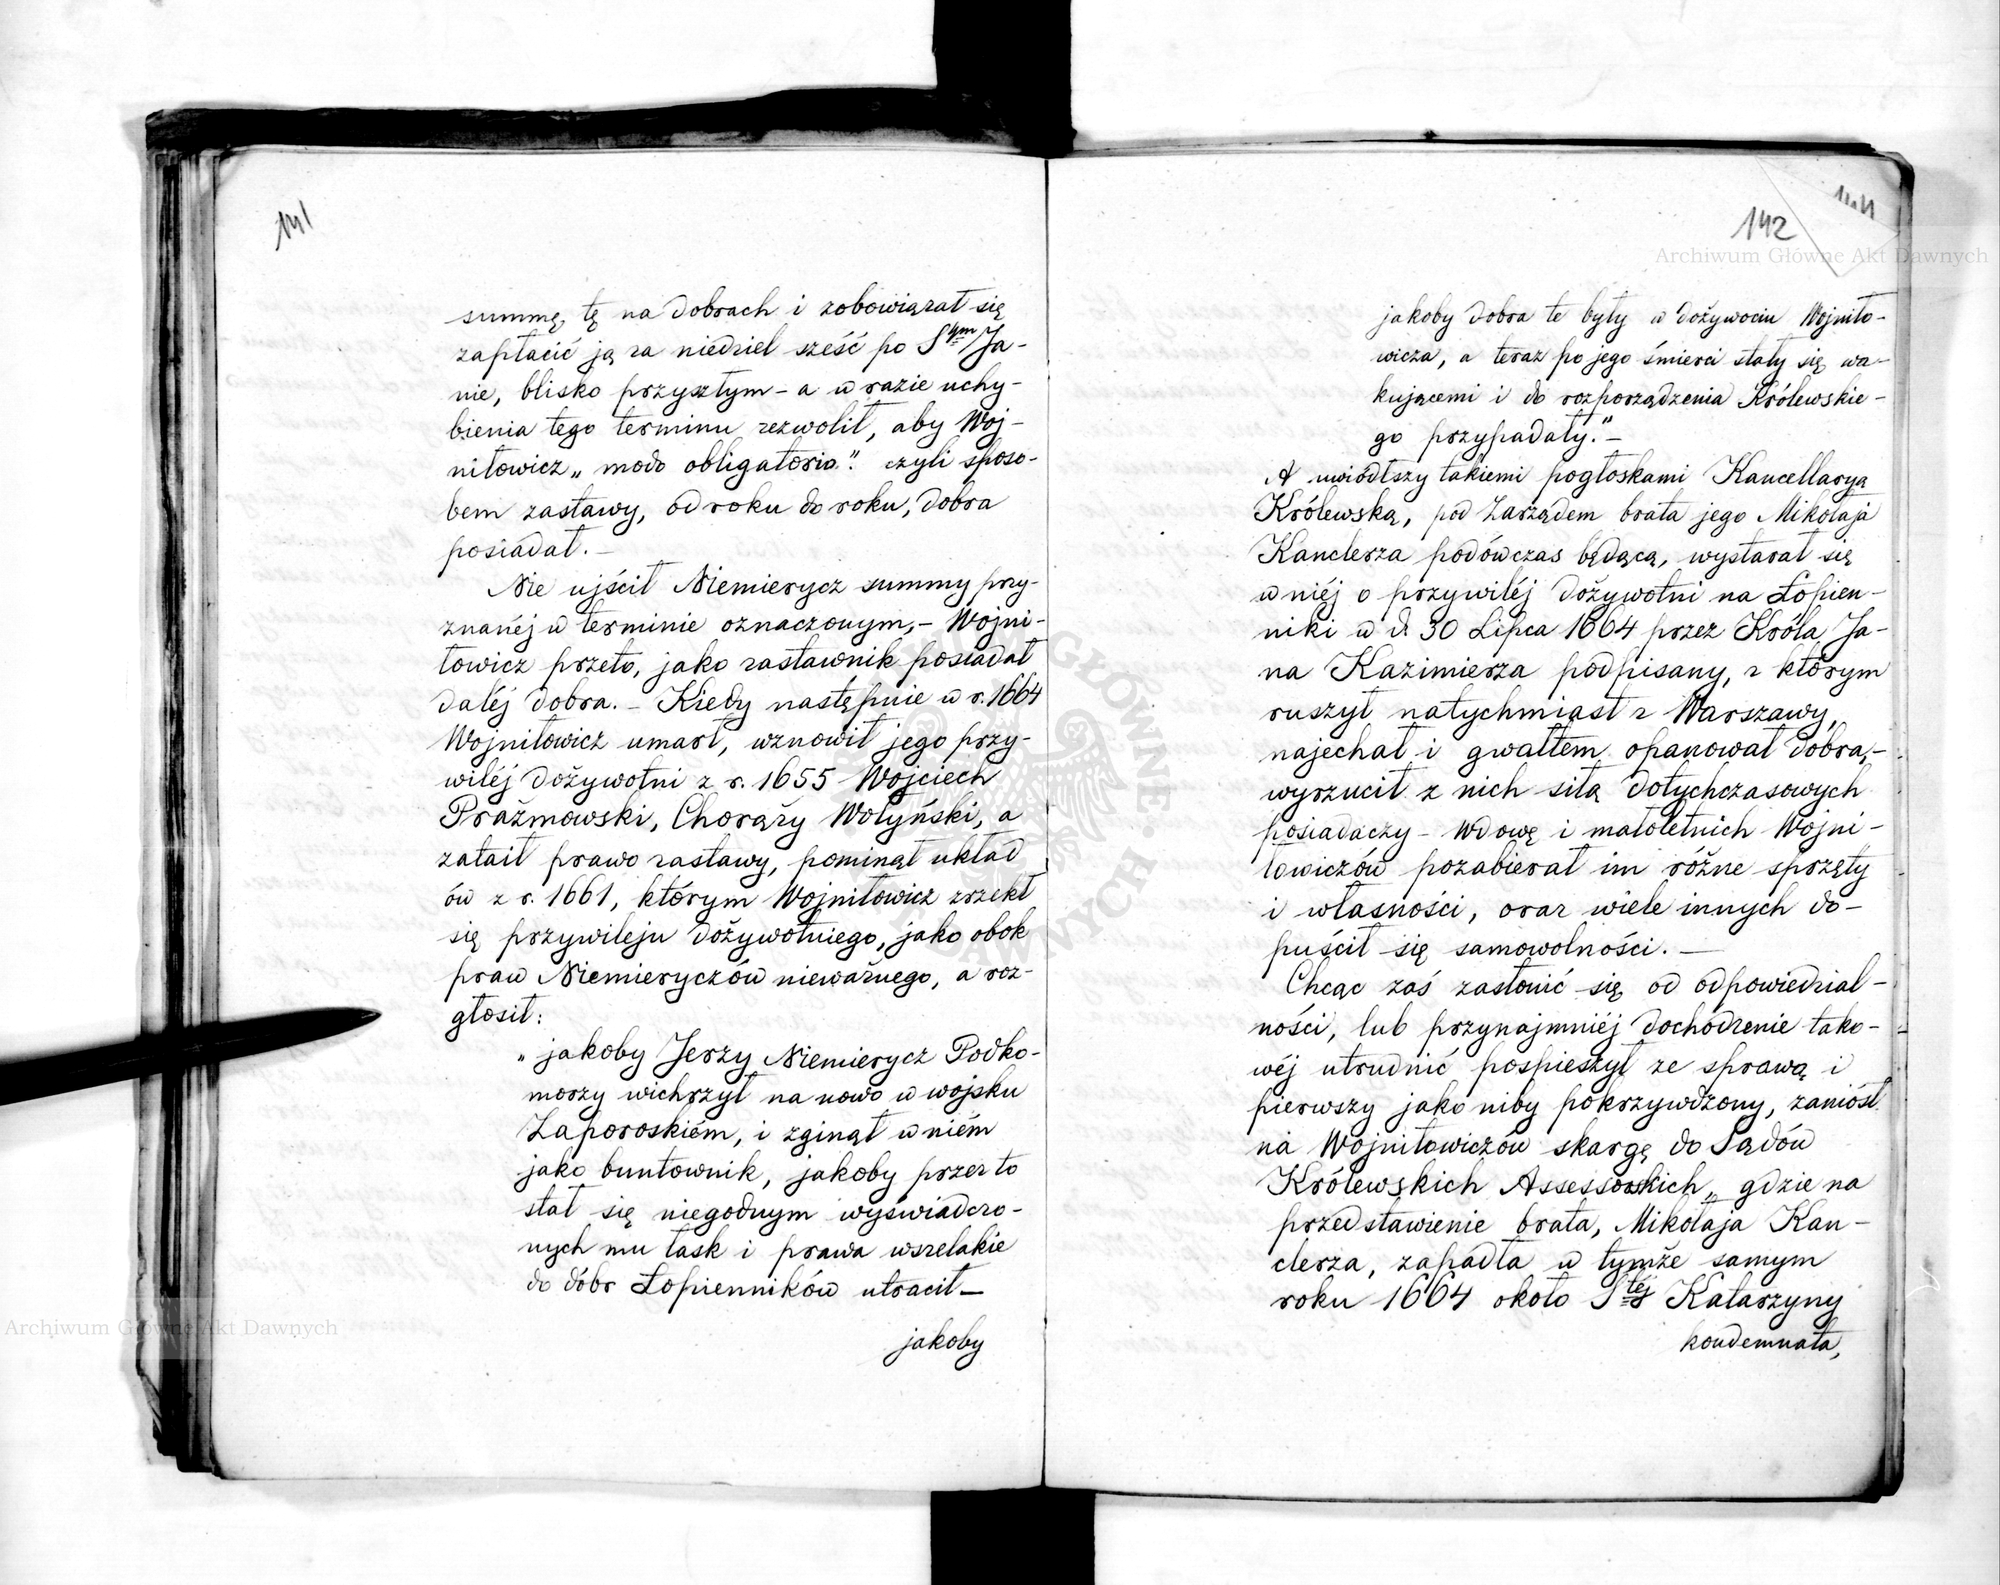 141
summę, tę na dobrach i zobowiązał się
zapłacić ją za niedziel sześć po Sym Ja-
nie, blisko przyszłym – a w razie uchy-
bienia tego terminu zezwolił, aby Woj-
niłowicz „modo obligatorio.” czyli sposo-
bem zastawy, od roku do roku, dobra
posiadał. –
Nie ujścił Niemierycz summy przy-
znanéj w terminie oznaczonym, – Wojni-
łowicz przeto, jako zastawnik posiadał
daléj dobra. – Kiedy następnie w r. 1664
Wojniłowicz umarł, wznowił jego przy-
wiléj dożywotni z r. 1655 Wojciech
Prażmowski, Chorąży Wołyński, a
zataił prawo zastawy, pominął układ
ów z r. 1661, którym Wojniłowicz zrzekł
się przywileju dożywotniego, jako obok
praw Niemieryczów nieważnego, a roz-
głosił:
„jakoby Jerzy Niemierycz Podko-
morzy wichrzył na nowo w wojsku
Zaporoskiém, i zginął w niém
jako buntownik, jakoby przez to
stał się niegodnym wyświadczo-
nych mu łask i prawa wszelakie
do dóbr Łopienników utracił –
jakoby
142
jakoby dobra te były w dożywociu Wojniło-
wicza, a teraz po jego śmierci stały się wa-
kującemi i do rozporządzenia Królewskie-
go przypadały.” –
A uwiódłszy takiemi pogłoskami Kancellaryą
Królewską, pod Zarządem brata jego Mikołaja
Kanclerza podówczas będącą, wystarał się
w niéj o przywiléj dożywotni na Łopien-
niki w d. 30 Lipca 1664 przez Króla Ja-
na Kazimierza podpisany, z którym
ruszył natychmiast z Warszawy,
najechał i gwałtem opanował dobra, –
wyrzucił z nich siłą dotychczasowych
posiadaczy – Wdowę i małoletnich Wojni-
łowiczów pozabierał im różne sprzęty
i własności, oraz wiele innych do-
puścił się samowolności. –
Chcąc zaś zasłonić się od odpowiedzial-
ności, lub przynajmniéj dochodzenie tako-
wéj utrudnić pospieszył ze sprawą i
pierwszy jako niby pokrzywdzony, zaniósł
na Wojniłowiczów skargę do Sądów
Królewskich Assessorskich „ gdzie na
przedstawienie brata, Mikołaja Kan-
clerza, zapadła w tymże samym
roku 1664 około Stéj Katarzyny
kondemnata,
Archiwum Główne Akt Dawnych
Archiwum Główne Akt Dawnych